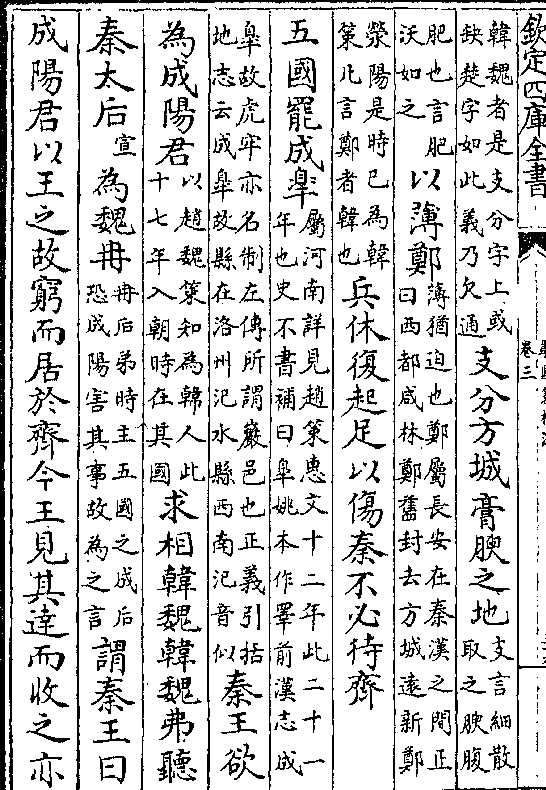 欽定四庫全書
卷三
韓魏者是支分字上或缺楚字如此義乃欠通支分方城膏腴之地支言細散取之腴腹
肥也言肥沃如之以薄鄭薄猶迫也鄭屬長安在秦漢之間正曰西都咸林鄭舊封去方城遠新鄭
滎陽是時已為韓策凡言鄭者韓也兵休復起足以傷秦不必待齊
五國罷成睪屬河南詳見趙策惠文十二年此二十一年也史不書補曰皐姚本作睪前漢志成
皐故虎牢亦名制左傳所謂巖邑也正義引括地志云成皐故縣在洛州汜水縣西南汜音似秦王欲
為成陽君以趙魏策知為韓人此十七年入朝時在其國求相韓魏韓魏弗聽
秦太后宣為魏冉冉后弟時主五國之成后恐成陽害其事故為之言謂秦王曰
成陽君以王之故窮而居於齊今王見其達而收之亦